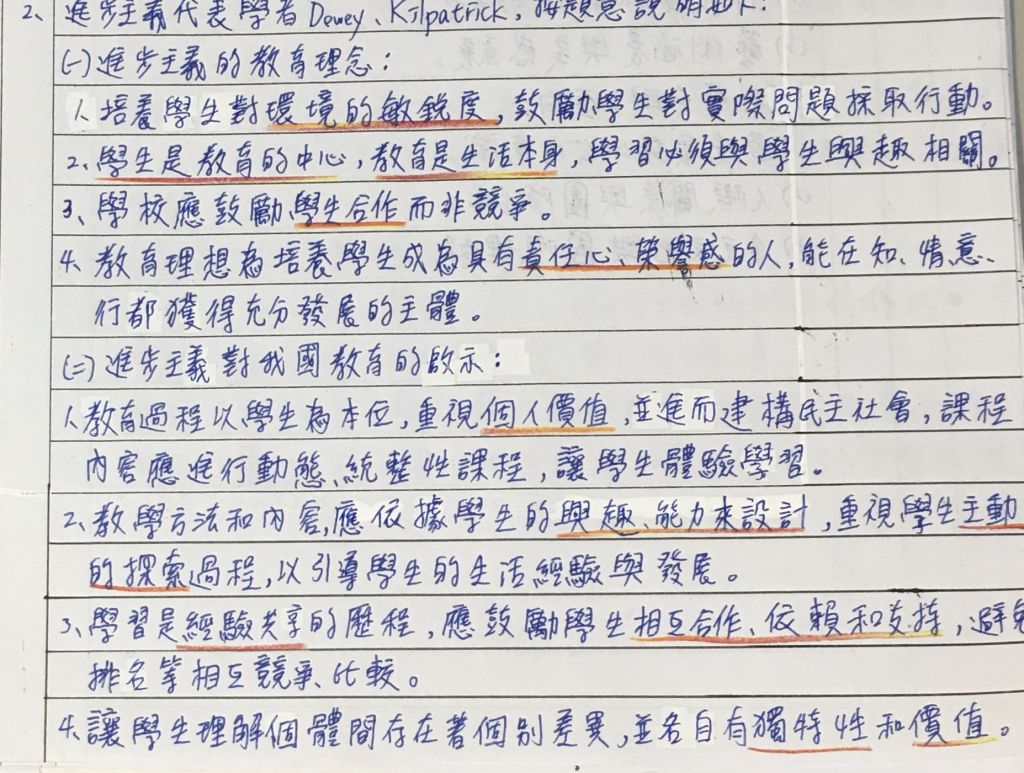 2、進步主義代表學者Dewey、Kilpatrick,按題意說明如下:
(一)進步主義的教育理念:
1、培養學生對環境的敏銳度,鼓勵學生對實際問題採取行動。
2、學生是教育的中心,教育是生活本身,學習必須與學生興趣相關。
3、學校應鼓勵學生合作而非競爭。
4、教育理想為培養學生成為具有責任心、榮譽感的人,能在知、情意、
行都獲得充分發展的主體。
(二)進步主義對我國教育的啟示:
1、教育過程以學生為本位,重視個人價值,並進而建構民主社會,課程
內容應進行動態、統整性課程,讓學生體驗學習。
2、教學方法和內容,應依據學生的興趣、能力來設計,重視學生主動
的探索過程,以引導學生的生活經驗與發展。
3、學習是經驗共享的歷程,應鼓勵學生相互合作、依賴和支持,避免
排名等相互競爭、比較。
4、讓學生理解個體間存在著個別差異,並各自有獨特性和價值。